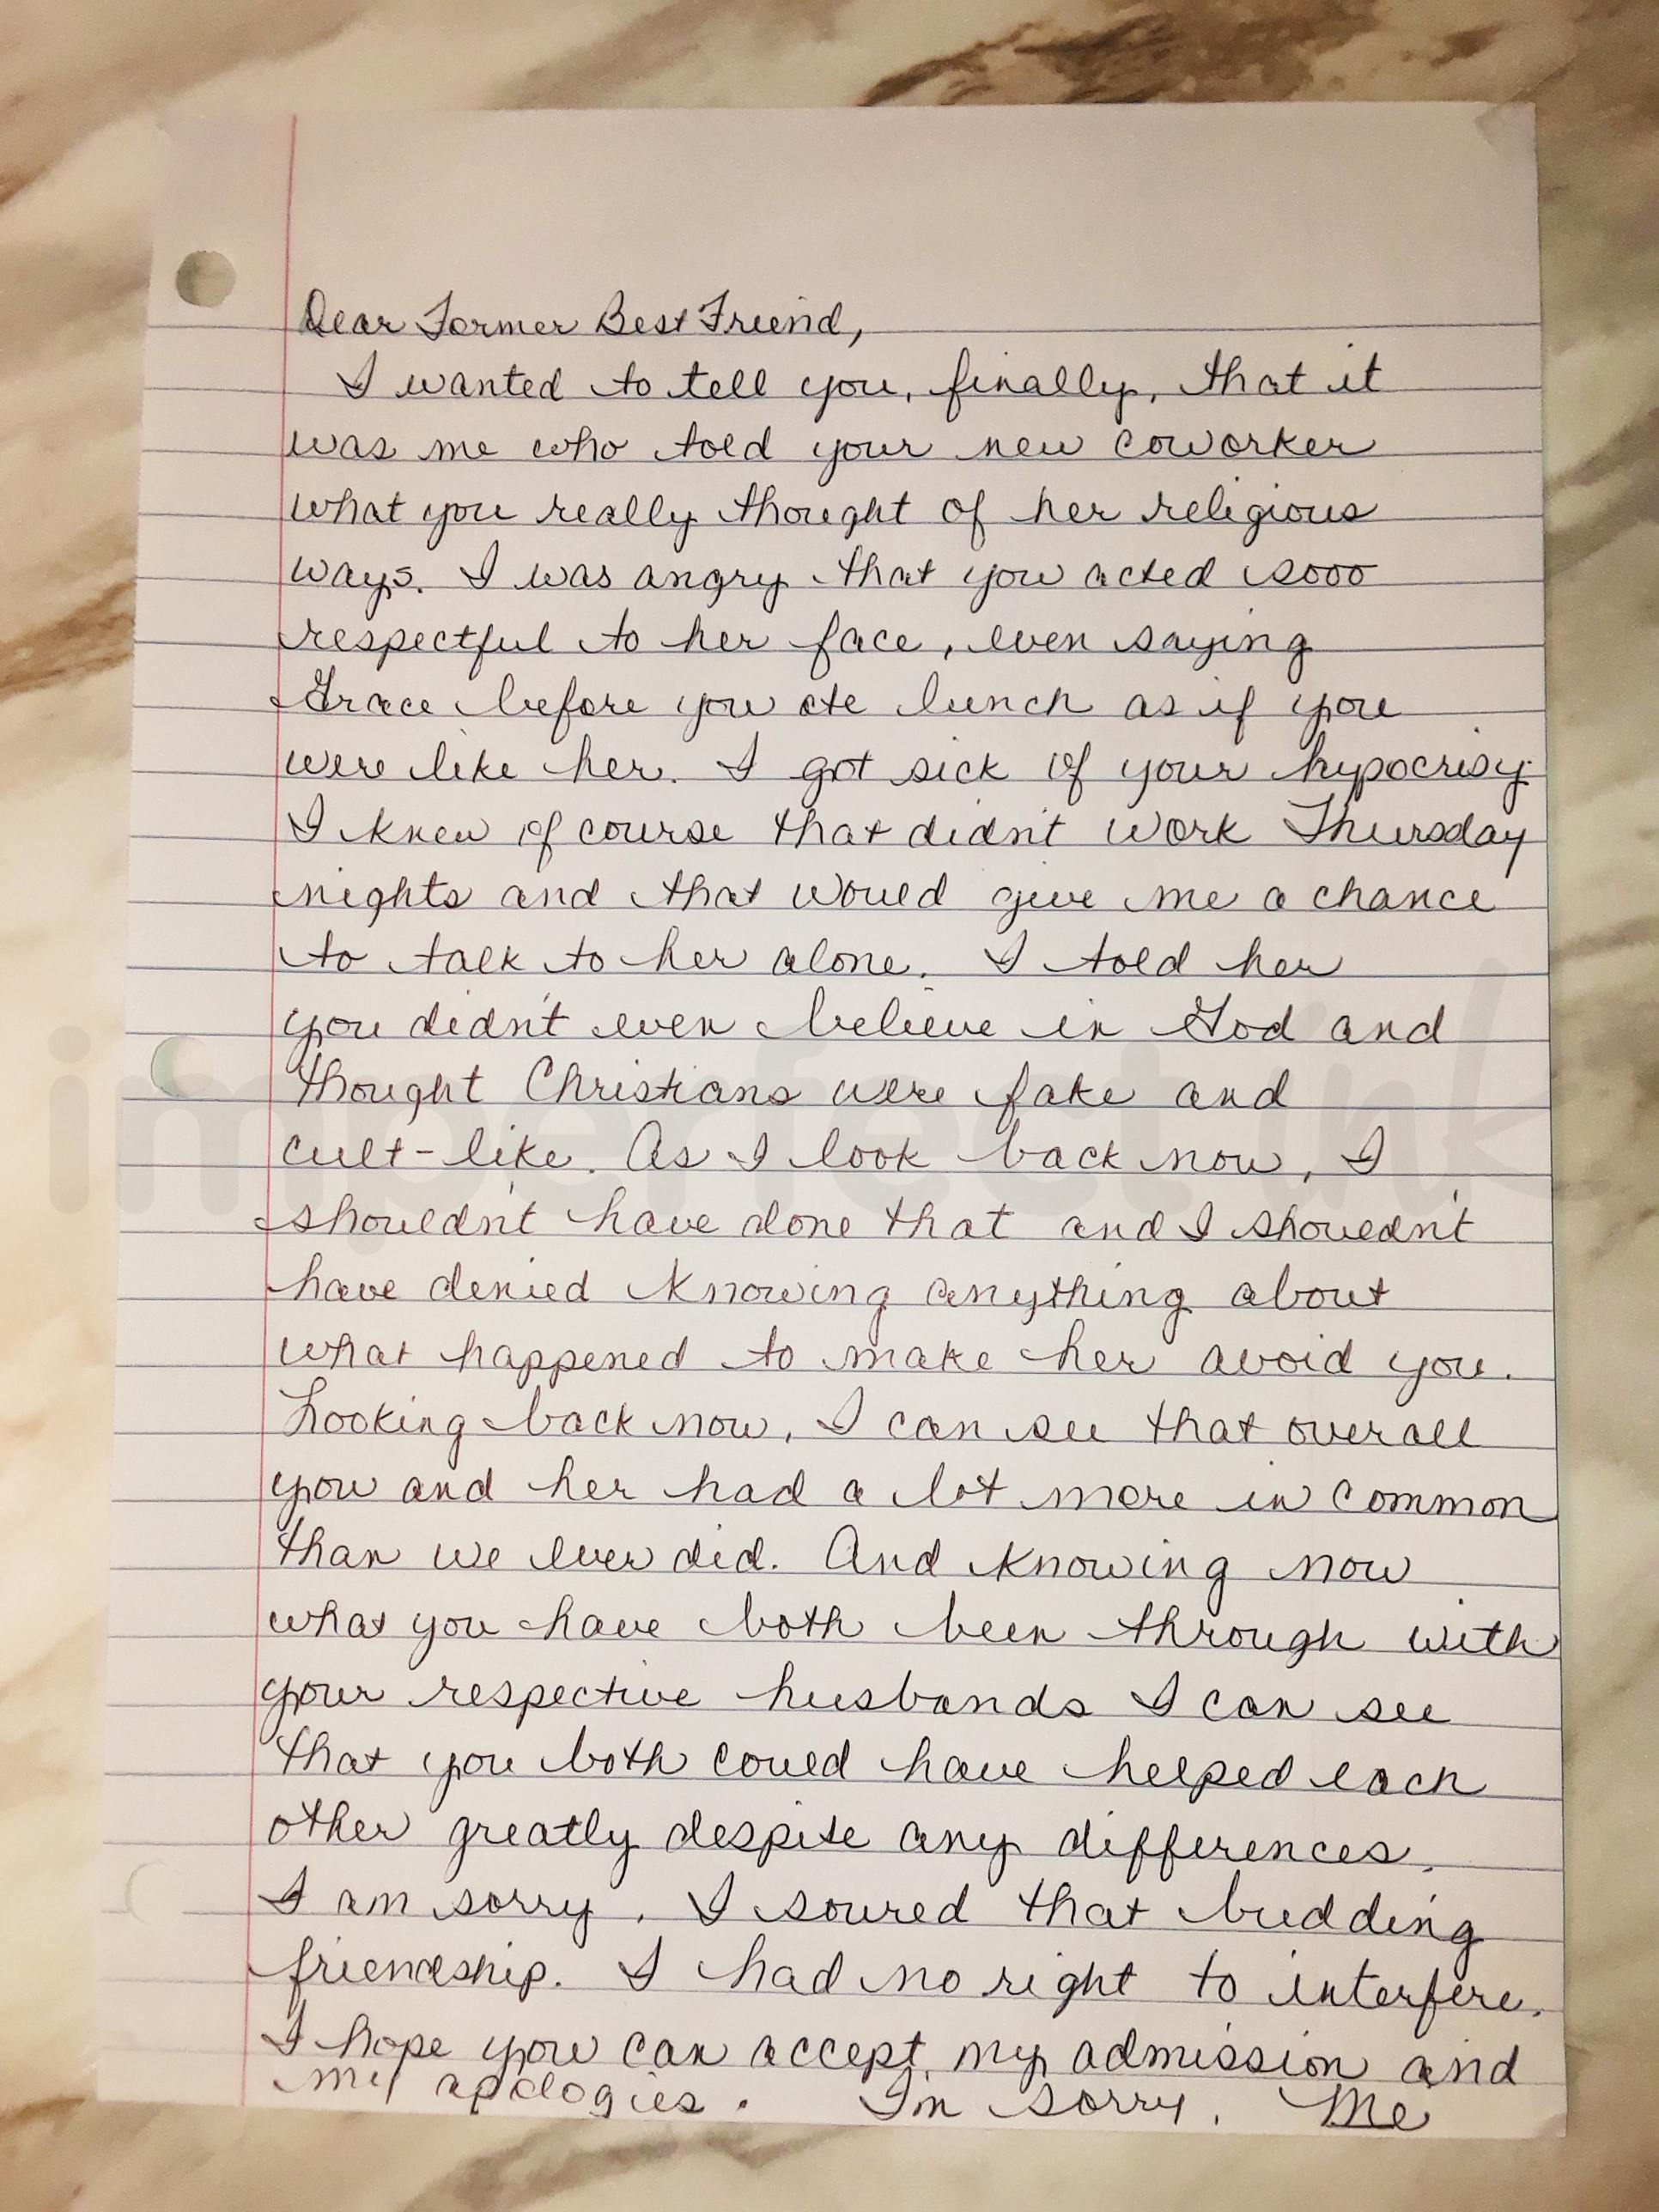 Dear Former Best Friend,
I wanted to tell you, finally, that it
was me who told your new coworker
what you really thought of her religious
ways. I was angry that you acted sooo
respectful to her face, even saying
Grace before you ate lunch as if you
were like her. I got sick of your hypocrisy.
I knew of course that didn't work Thursday
nights and that would give me a chance
to talk to her alone. I told her
you didn't even believe in God and
thought Christians were fake and
cult-like. As I look back now, I
shouldn't have done that and I shouldn't
have denied knowing anything about
what happened to make her avoid you.
Looking back now, I can see that overall
you and her had a lot more in common
than we ever did. And knowing now
what you have both been through with
your respective husbands I can see
that you both could have helped each
other greatly despite any differences.
I am sorry. I soured that budding
friendship. I had no right to interfere.
I hope you can accept my admission and
my apologies. I'm sorry. Me
imperfect ink